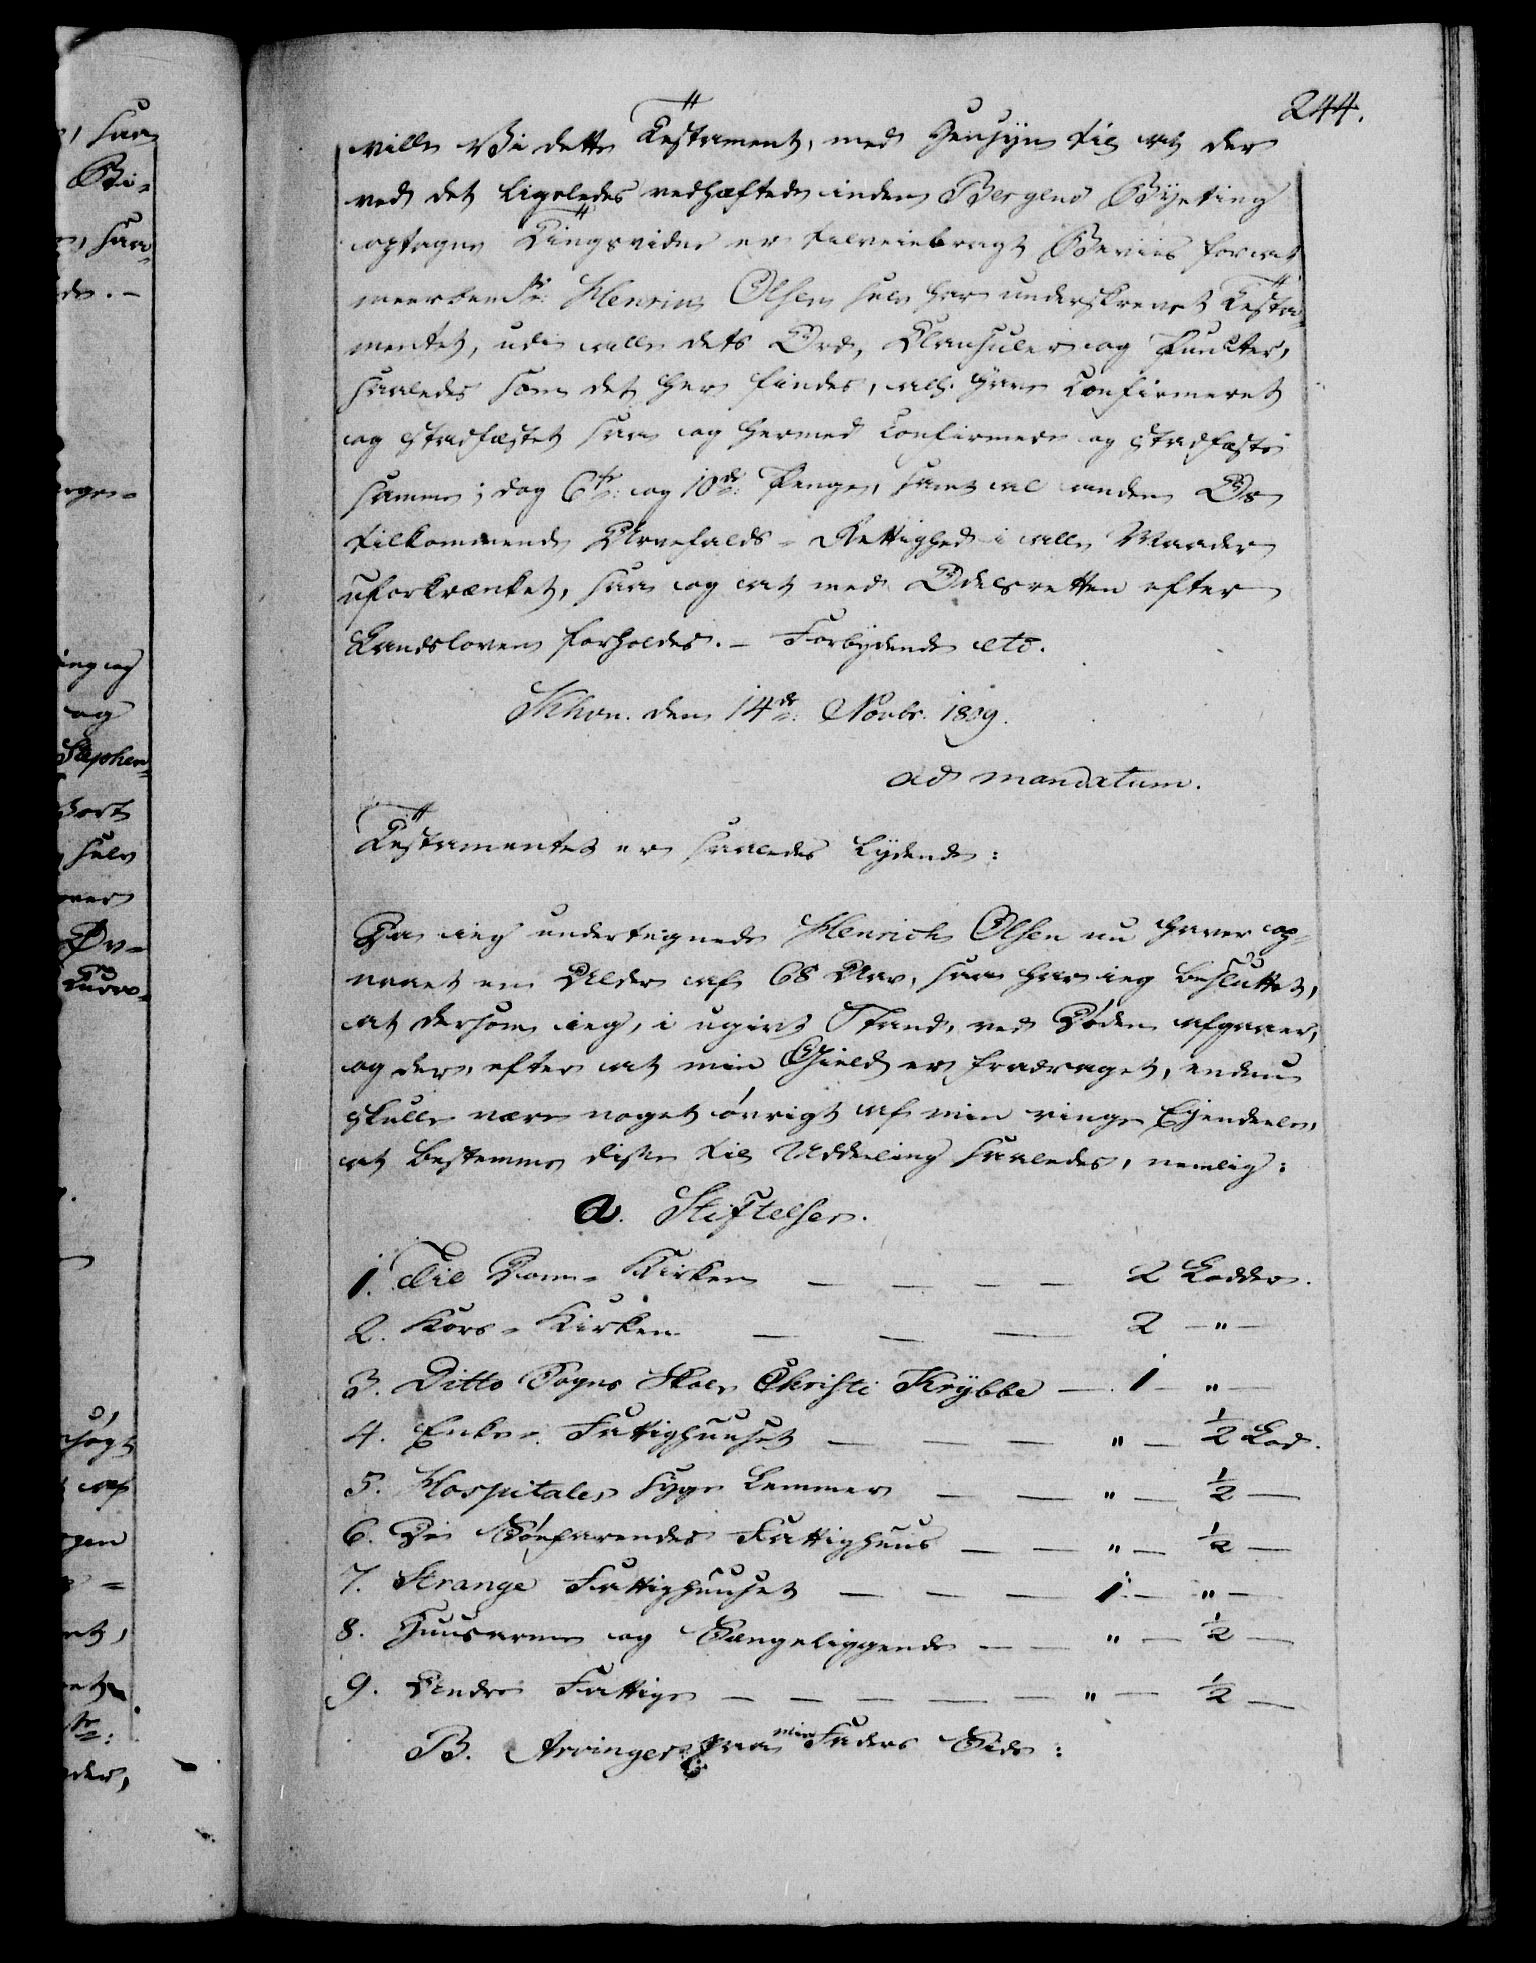 244.
ville Vi dette Testament, med Hensyn til at der
ved det ligeledes vedhæftede inden Bergens Byeting
optagne Tingsvidne er tilveiebragt Beviis for at
meerbemte: Henrich Olsen selv har underskrevet Testa-
mentet, udi alle dets Ord, Clausuler og Puncter,
saaledes som det her findes, allern: have confirmeret
og stadfæstet saa og hermed confirmere og stadfæste
samme; dog 6te: og 10de: Penge, samt al anden Os
tilkommende Arvefalds-Rettighed i alle Maader
uforkrænket, saa og at med Odelsretten efter
Landsloven forholdes. – Forbydende etc.
Khvn. den 14de: Novbr. 1809.
ad mandatum.
Testamentet er saaledes lydende:
Da ieg undertegnede Henrich Olsen nu haver op-
naaet en Alder af 68 Aar, saa har ieg besluttet,
at dersom ieg, i ugivt Stand, ved Døden afgaaer,
og der, efter at min Gield er fradraget, endnu
skulle være noget øvrigt af min ringe Ejendeele,
at bestemme disse til Uddeling saaledes, nemlig:
a. Stiftelser.
1. Til Dom-Kirken — — — — 2 Lodder.
2. Kors-Kirken — — — 2 — " —
3. Ditto Sogns Skole Christi Krybbe — 1 — " —
4. Enke-Fattighuuset — — — " — 1/2 Lod.
5. Hospitalets syge Lemmer — — " — 1/2 —
6. De Søefarendes Fattighuus — — " — 1/2 —
7. Strange Fattighuuset — — — 1 — " —
8. Huusarme og Sængeliggende — — " — 1/2 —
9. Andre Fattige — — — — — " — 1/2 —
B. Arvinger paa min Faders Side: